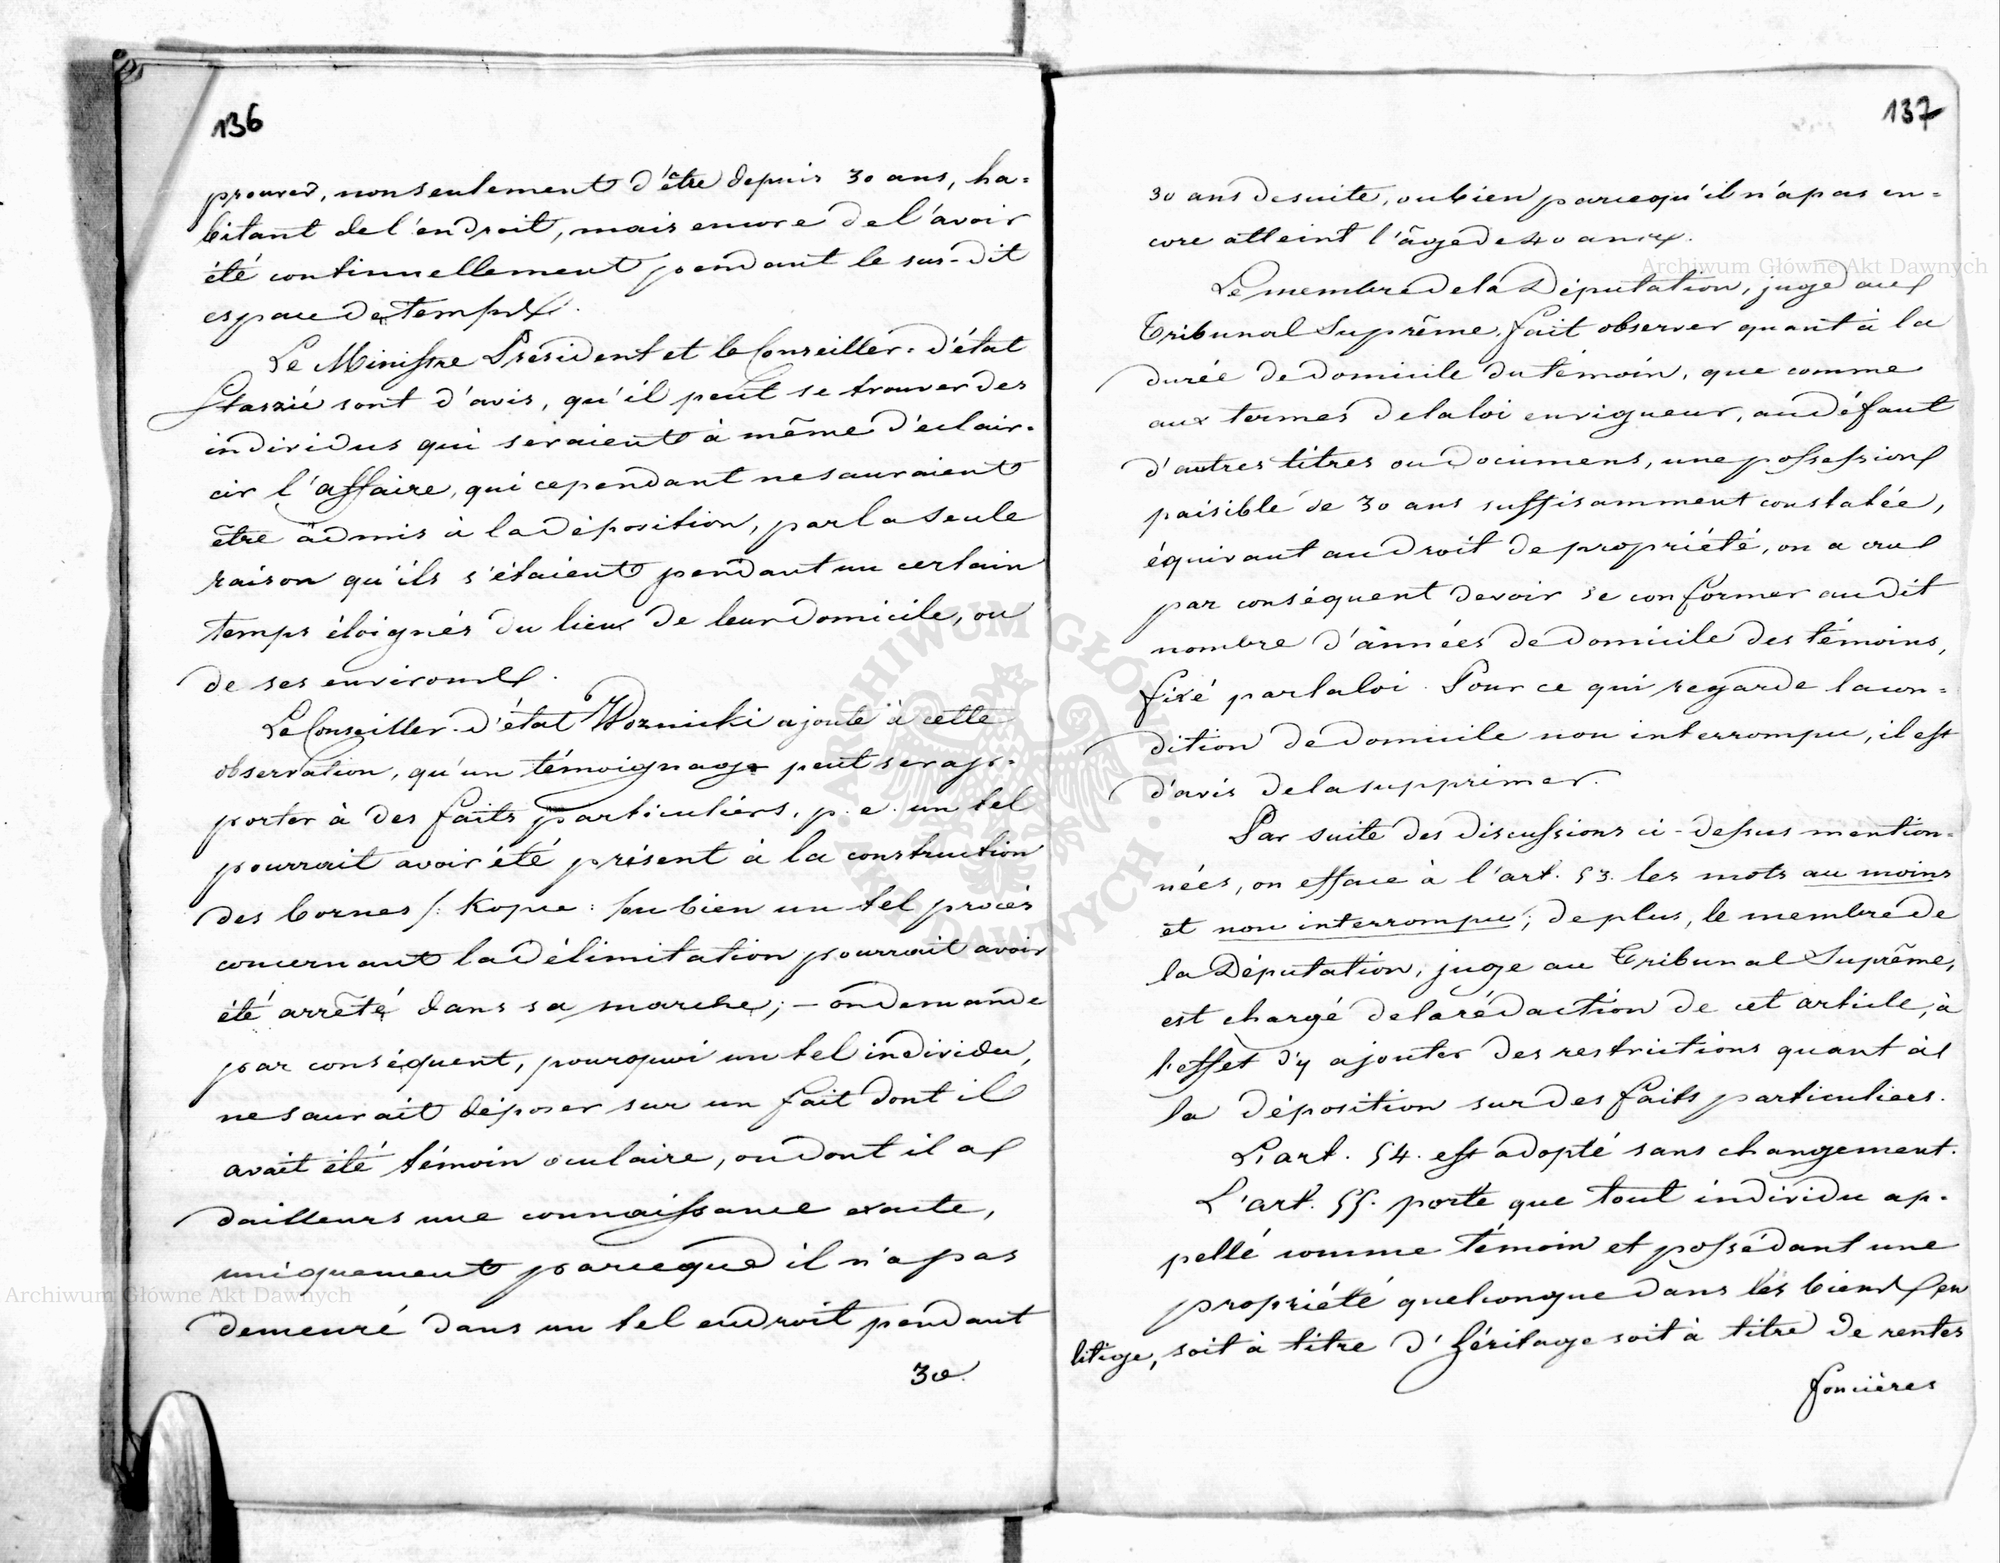 136
prouver, nonseulement d'être depuis 30 ans, ha=
bitant de l'endroit, mais encore de l'avoir
été continuellement pendant le sus-dit
espace de temps.
Le Ministre Président et le Conseiller-d'état
Staszic sont d'avis, qu'il peut se trouver des
individus qui seraient à même d'éclair=
cir l'affaire, qui cependant ne sauraient
être admis à la déposition, par la seule
raison qu'ils s'étaient pendant un certain
temps éloignés du lieu de leur domicile, ou
de ses environs.
Le Conseiller-d'état Woznicki ajoute à cette
observation, qu'un témoignage peut se rap=
porter à des faits particuliers, p. e. un tel
pourrait avoir été présent à la construction
des bornes /: Kopce :/ ou bien un tel procès
concernant la délimitation pourrait avoir
été arrêté dans sa marche; – on demande
par conséquent, pourquoi un tel individu,
ne saurait déposer sur un fait dont il
avait été témoin oculaire, ou dont il a
dailleurs une connaissance exacte,
uniquement parceque il n'a pas
demeuré dans un tel endroit pendant
30
137
30 ans desuite, ou bien parcequ'il n'a pas en=
core atteint l'âge de 40 ans.
Le membre de la Députation, juge au
Tribunal Suprême, fait observer quant à la
durée de domicile du témoin, que comme
aux termes de la loi en vigueur, au défaut
d'autres titres ou documens, une possession
paisible de 30 ans suffisamment constatée,
équivaut au droit de propriété, on a cru
par conséquent devoir se conformer au dit
nombre d'années de domicile des témoins,
fixé par la loi. Pour ce qui regarde la con=
dition de domicile non interrompu, il est
d'avis de la supprimer.
Par suite des discussions ci-dessus mention=
nées, on efface à l'art. 53. les mots au moins
et non interrompu; de plus, le membre de
la Députation, juge au Tribunal Suprême,
est chargé de la rédaction de cet article, à
l'effet d'y ajouter des restrictions quant à
la déposition sur des faits particuliers.
L'art. 54. est adopté sans changement.
L'art. 55. porte que tout individu ap=
pellé comme témoin et possédant une
propriété quelconque dans les biens en
litige, soit à titre d'héritage soit à titre de rentes
foncières
Archiwum Główne Akt Dawnych
Archiwum Główne Akt Dawnych
ARCHIWUM GŁÓWNE AKT DAWNYCH